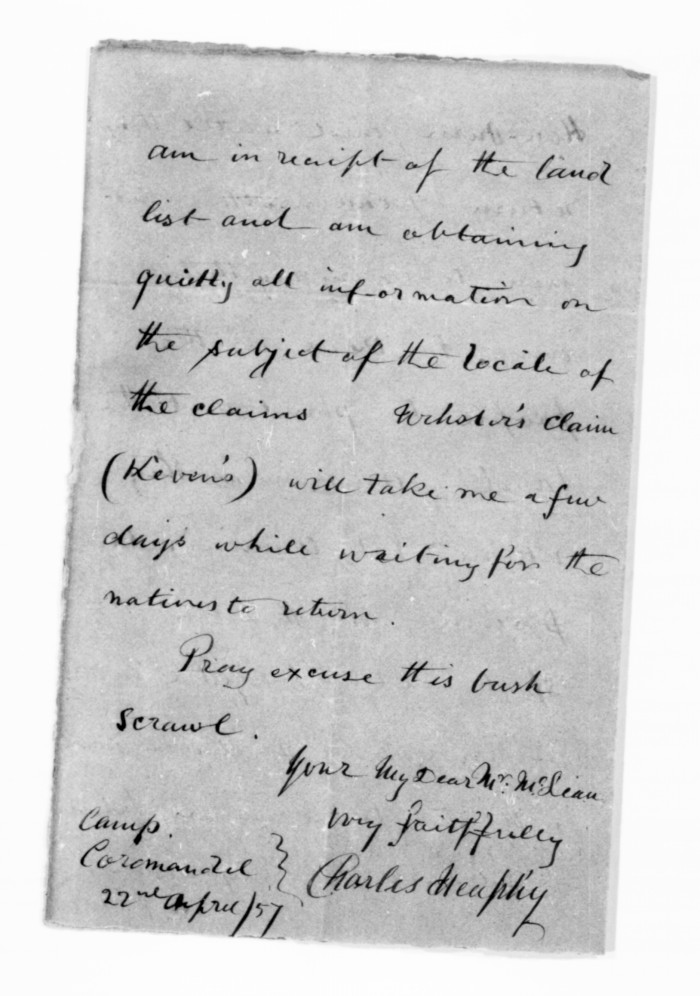 am in receipt of the land
list and am obtaining
quietly all information on
the subject of the locale of
the claims Webster's claim
(Keven's) will take me a few
days while waiting for the
natives to return.
Pray excuse this bush
scrawl.
Your My Dear Mr. McLean
very faithfully
Charles Heaphy
Camp.
Coromandel
22nd April/57